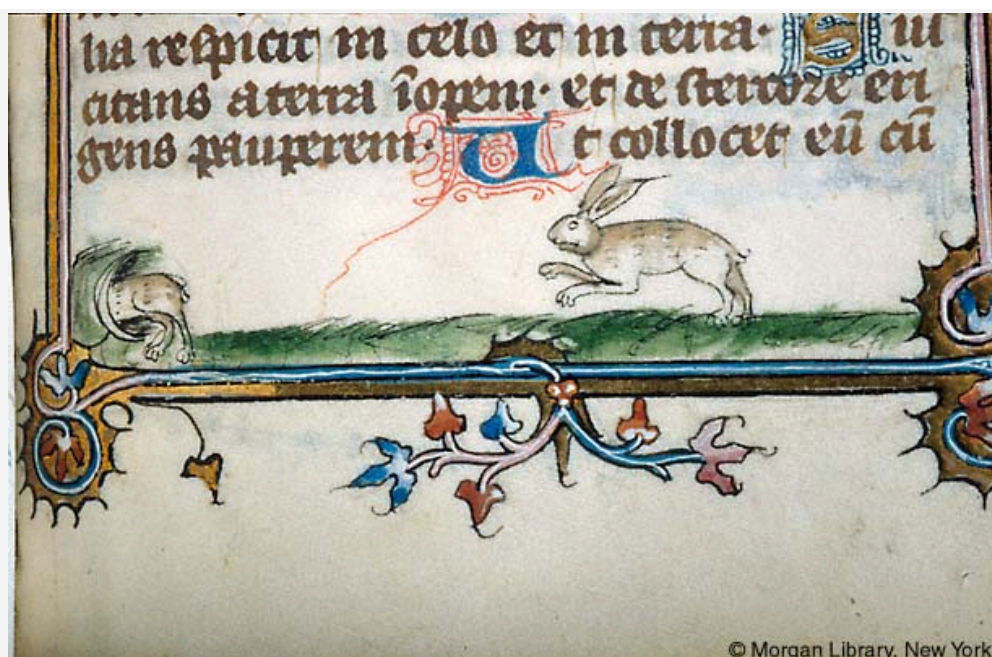 lia respicit in celo et in terra· Sus
citans a terra īopem· et de stercore eri
gens pauperem· Ut collocet eū cū
© Morgan Library, New York